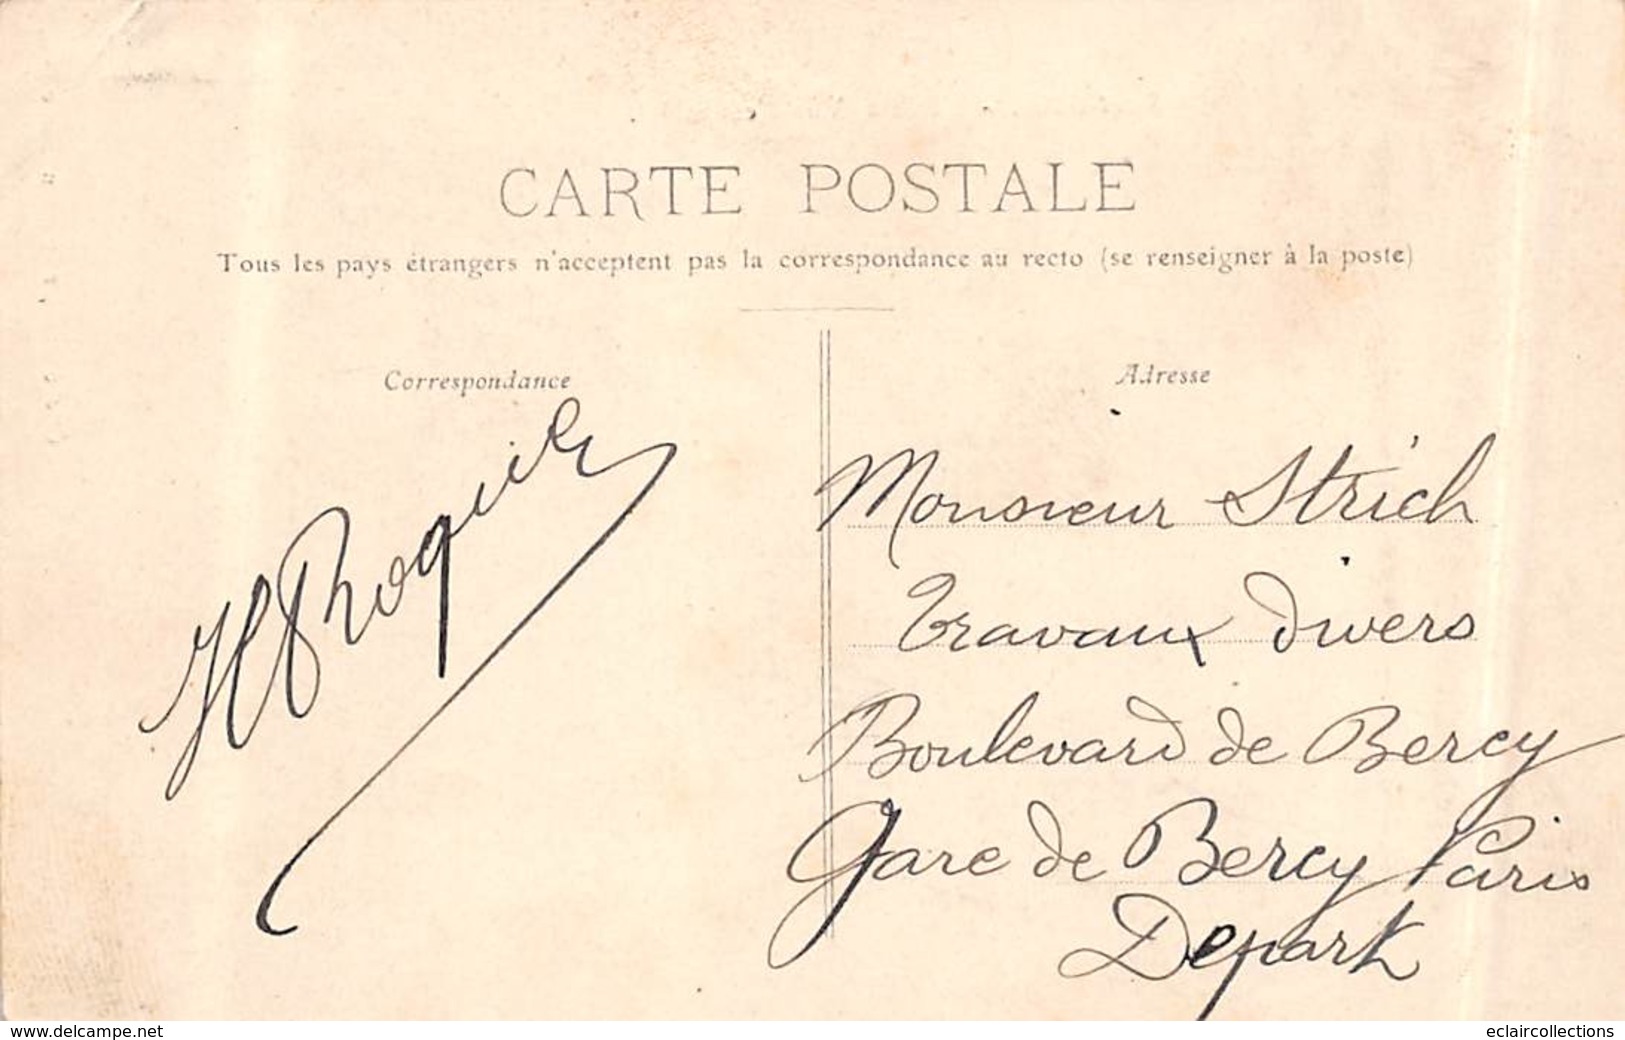 CARTE POSTALE
Tous les pays étrangers n'acceptent pas la correspondance au recto (se renseigner à la poste)
Correspondance
Adresse
Monsieur Strich
Travaux divers
Boulevard de Bercy
Gare de Bercy Paris
Depart
www.delcampe.net
eclaircollections